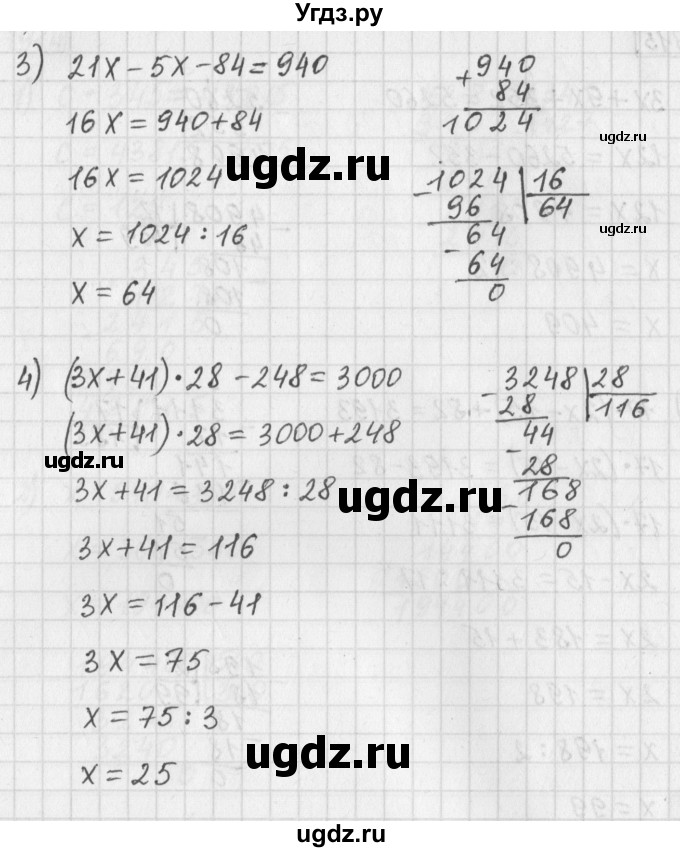 Угдз.ру
3) 21x - 5x - 84 = 940
16x = 940 + 84
16x = 1024
x = 1024 : 16
x = 64
+ 940
84
1024
- 1024 | 16
96 64
- 64
64
0
4) (3x + 41) · 28 - 248 = 3000
(3x + 41) · 28 = 3000 + 248
3x + 41 = 3248 : 28
3x + 41 = 116
3x = 116 - 41
3x = 75
x = 75 : 3
x = 25
- 3248 | 28
28 116
- 44
28
- 168
168
0
ugdz.ru
ugdz.ru
ugdz.ru
ugdz.ru
ugdz.ru
ugdz.ru
ugdz.ru
ugdz.ru